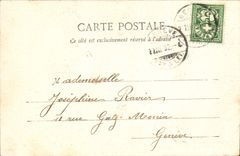 CARTE POSTALE
Ce côté est exclusivement réservé à l'adresse
Mademoiselle
Joséphine Ravier
rue Gal-Monin
Genève